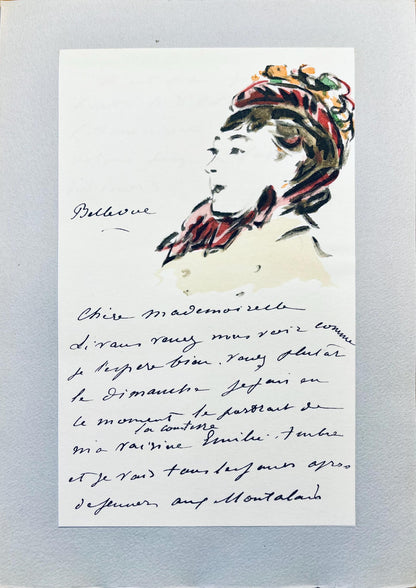 Bellevue
Chère mademoiselle
Si vous venez nous voir comme
je l'espère bien. venez plutôt
le dimanche je fais en
ce moment le portrait de
la comtesse
ma voisine Emilie. Ambre
et je vais tous les jours apres
dejeuner aux Montalais